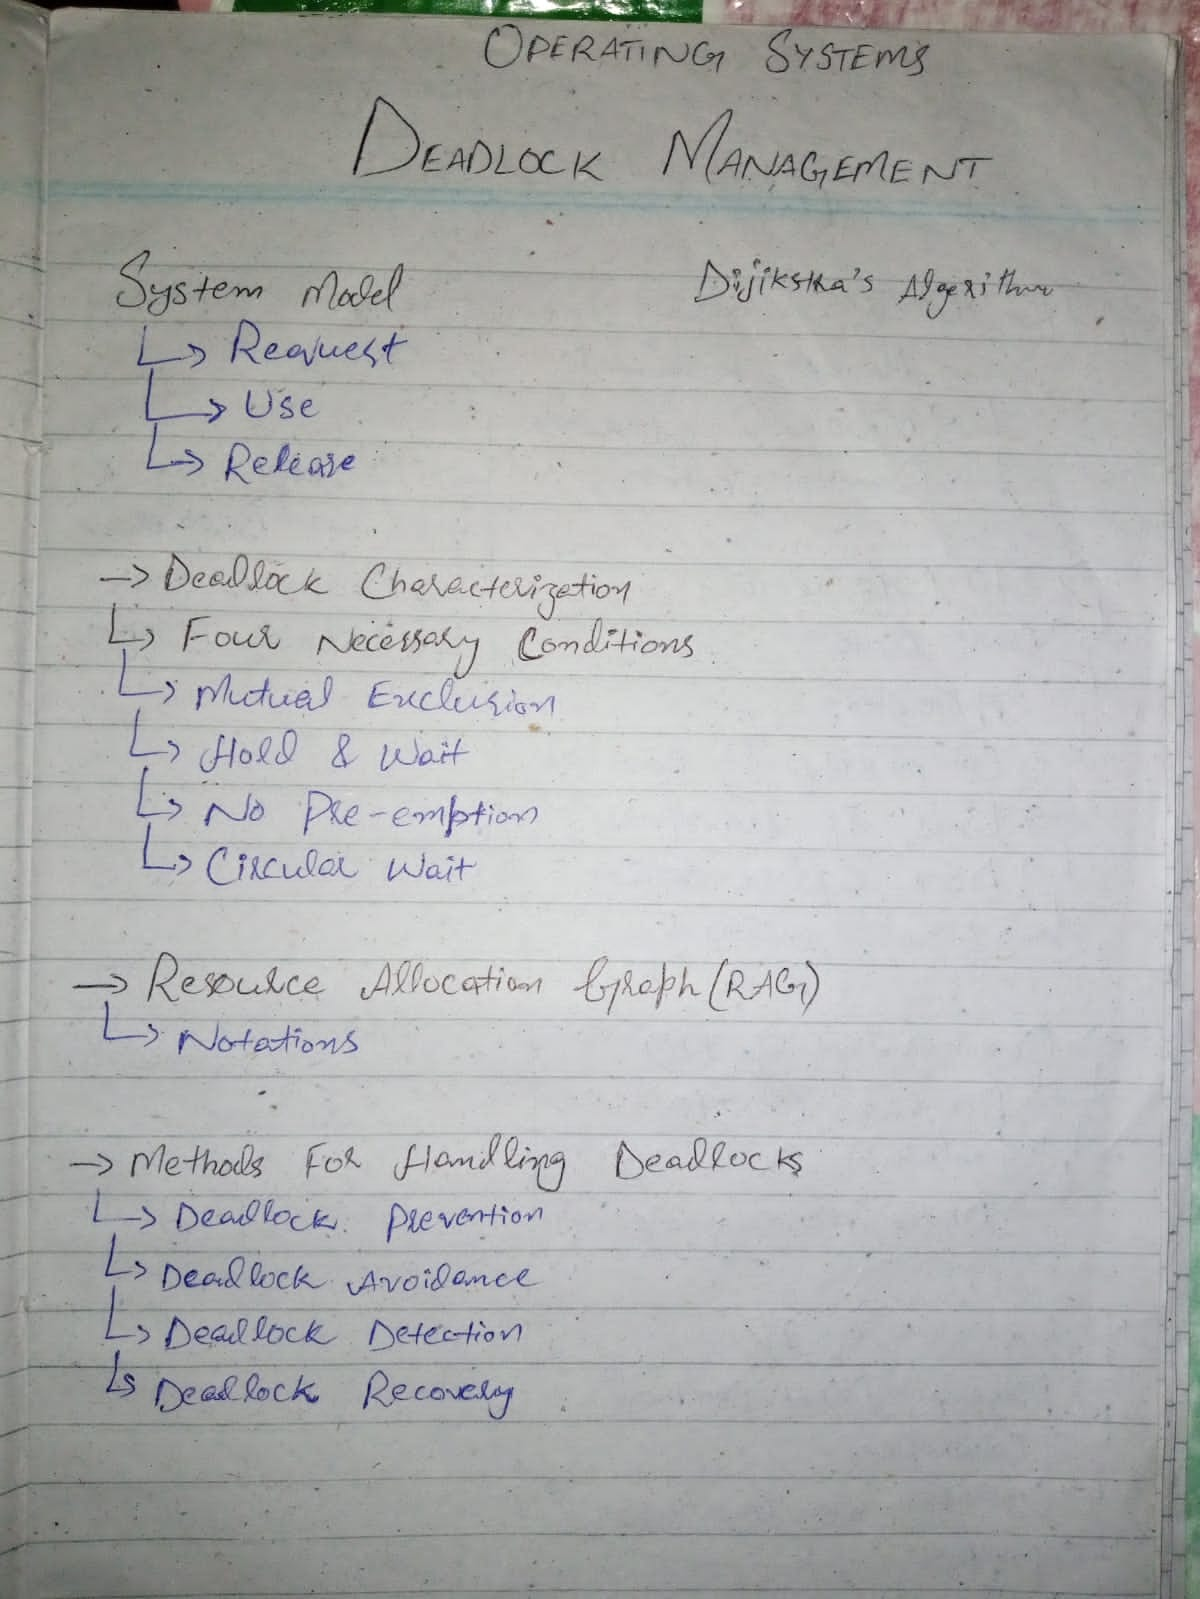 OPERATING SYSTEMS
DEADLOCK MANAGEMENT
System Model
Dijikstra's Algorithm
↳ Request
↳ Use
↳ Release
→ Deadlock Characterization
↳ Four Necessary Conditions
↳ Mutual Exclusion
↳ Hold & Wait
↳ No Pre-emption
↳ Circular Wait
→ Resource Allocation Graph (RAG)
↳ Notations
→ Methods For Handling Deadlocks
↳ Deadlock Prevention
↳ Deadlock Avoidance
↳ Deadlock Detection
↳ Deadlock Recovery